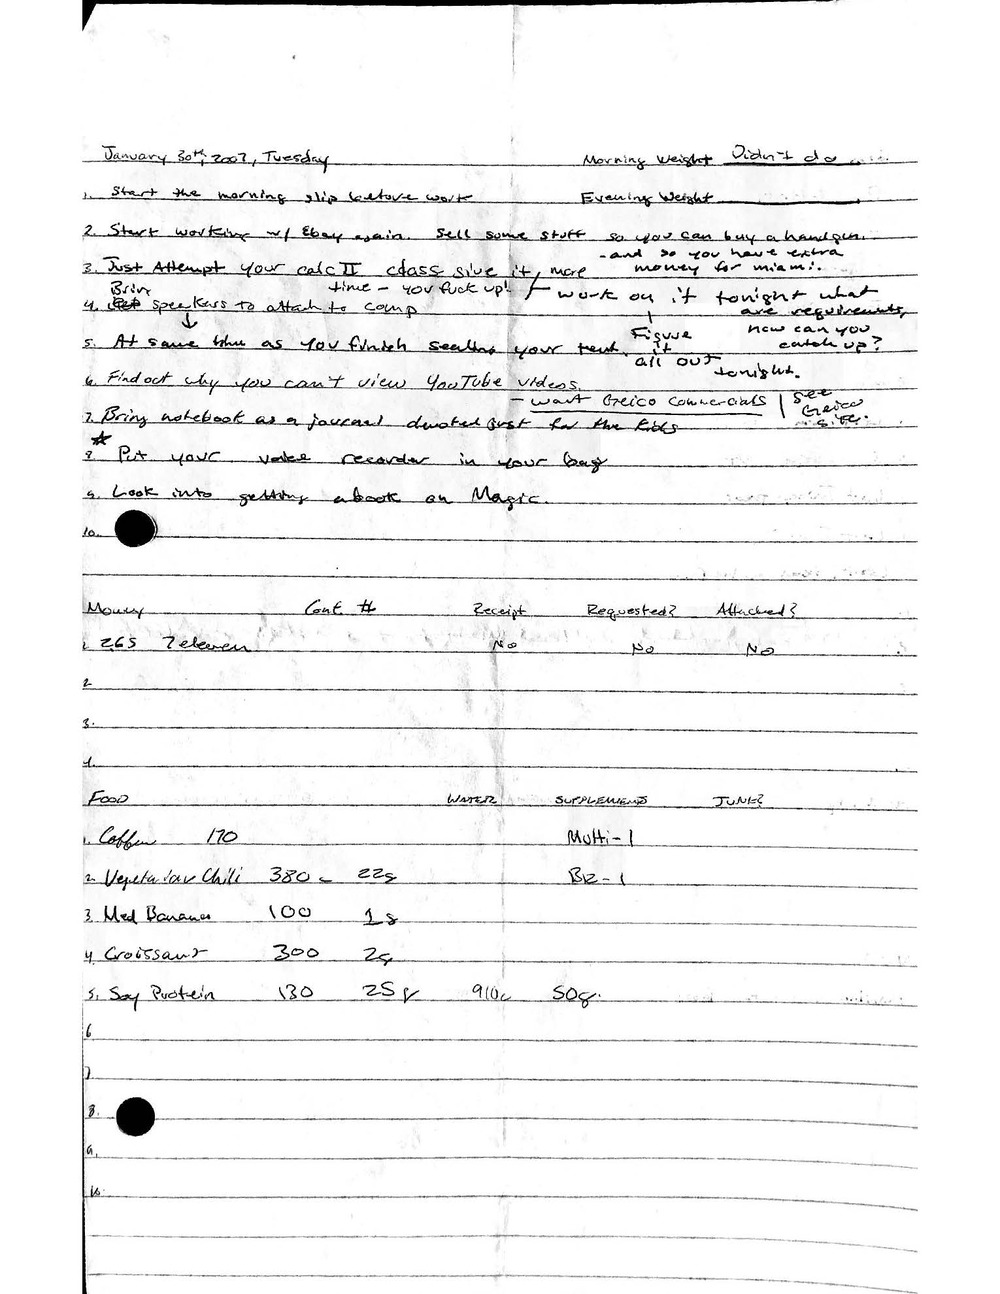 January 30th, 2007, Tuesday Morning Weight Didn't do
1. Start the morning slip before work Evening Weight
2. Start working w/ Ebay again. Sell some stuff so you can buy a handgun.
- and so you have extra money for miami.
3. Just Attempt your calc II class give it more
time - you fuck up! work on it tonight what are requirements, how can you catch up?
Figure it all out tonight.
Bring
4. speakers to attach to comp
5. At same time as you finish sealing your tent.
6. Find out why you can't view YouTube videos.
- want Geico commercials | see Geico site.
7. Bring notebook as a journal devoted just for the kids
8. Put your voice recorder in your bag
9. Look into getting a book on Magic.
10.
Money Cont # Receipt Requested? Attached?
1. 265 7eleven No No No
2
3.
4.
FOOD WATER SUPPLEMENTS JUNK?
1. Coffee 170 Multi-1
2. Vegetarian Chili 380c 22g B12-1
3. Med Banana 100 1g
4. Croissant 300 2g
5. Soy Protein 130 25g 910c 50g.
6
7
8.
9.
10.